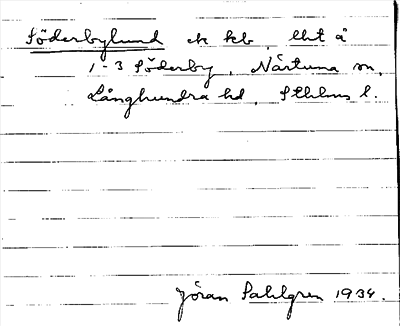 Söderbylund ek kb, lht å
1-3 Söderby, Närtuna sn,
Långhundra hd, Sthlms l.
Jöran Sahlgren 1934.